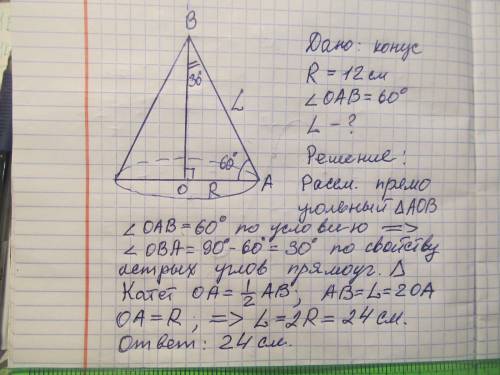 B
30°
L
60°
O
R
A
Дано: конус
R = 12 см
∠OAB = 60°
L - ?
Решение:
Рассм. прямо
угольный △AOB
∠OAB = 60° по условию =>
∠OBA = 90° - 60° = 30° по свойству
острых углов прямоуг. △
Катет OA = 1/2 AB; AB = L = 2OA
OA = R; => L = 2R = 24 см.
Ответ: 24 см.